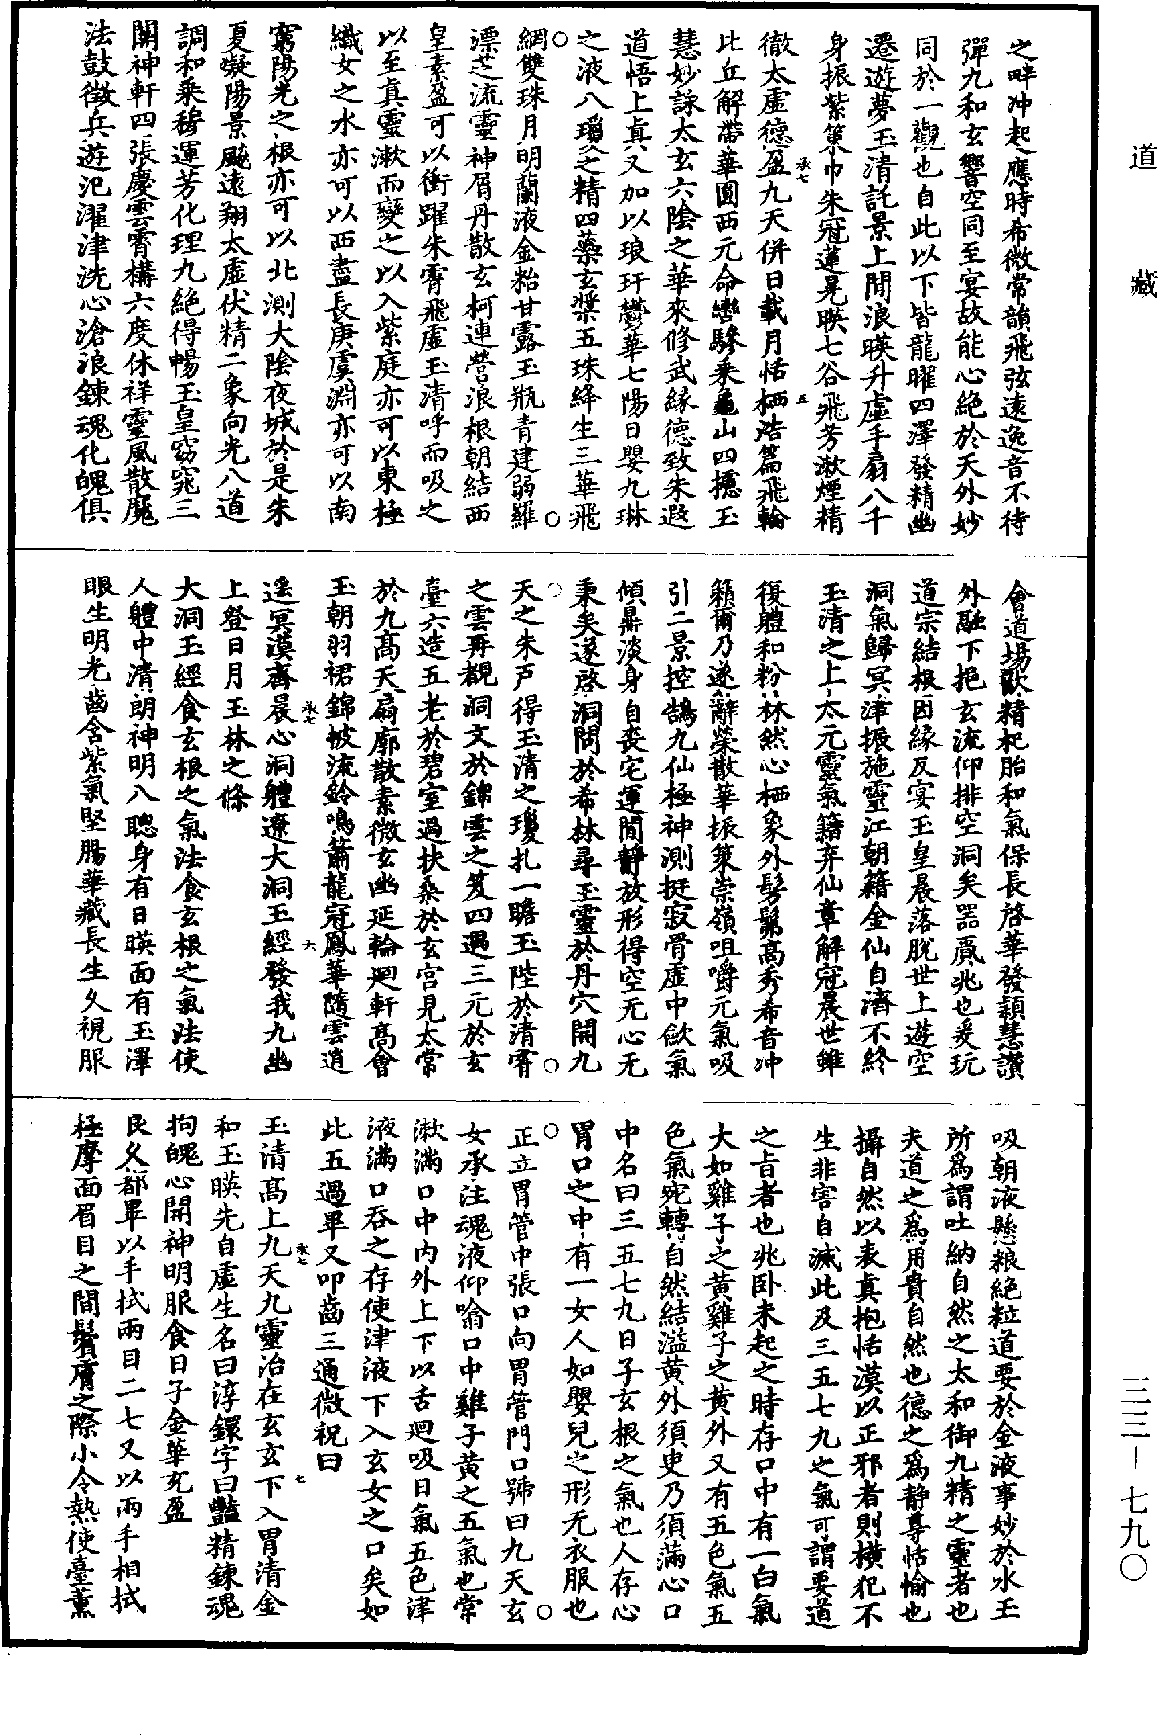 道藏
之畔冲起應時希微常韻飛弦遠逸音不待
彈九和玄響空同至宴故能心絶於天外妙
同於一觀也自此以下皆龍曜四澤發精幽
遷遊夢玉清託景上間浪暎升虛手扇八千
身振紫策巾朱冠蓮晃暎七谷飛芳漱煙精
徹太虛德盈九天併日載月恬栖浩篇飛輪
承七
五
此丘解帶華圃西元命巒驂乗龜山四攄玉
慧妙詠太玄六陰之華來修武緣德致朱遐
道悟上真又加以琅玕欝華七陽日嬰九琳
之液八瓊之精四藥玄漿五珠絳生三華飛
綱雙珠月明蘭液金粉甘露玉瓶青建弱羅
漂芝流靈神屑丹散玄柯連營浪根朝結西
皇素盈可以衝躍朱霄飛虛玉清呼而吸之
以至真靈漱而變之以入紫庭亦可以東極
織女之水亦可以西盡長庚虞淵亦可以南
窮陽光之根亦可以北測大陰夜城於是朱
夏凝陽景飈遠翔太虛伏精二象向光八道
調和乗稽運芳化理九絶得暢玉皇窈窕三
關神軒四張慶雲霄構六度休祥靈風散魔
法鼓徵兵遊汜濯津洗心滄浪鍊魂化魄俱
會道場歡精杞胎和氣保長啓華發穎慧讃
外融下挹玄流仰排空洞矣器贗兆也爰玩
道宗結根因緣反宴玉皇晨落脫世上遊空
洞氣歸冥津振施靈江朝籍金仙自濟不終
玉清之上太元靈氣籍弃仙章解冠晨世雖
復體和粉林然心栖象外髣髴高秀希音冲
籟爾乃遂辭榮散華振策崇嶺咀嚼元氣吸
引二景控鵠九仙極神測挺寂骨虛中飲氣
傾鼎淡身自丧宅運間靜放形得空无心无
秉矣遂啓洞門於希林尋玉靈於丹穴開九
天之朱戶得玉清之瓊扎一瞻玉陛於清霄
之雲再覩洞文於錦雲之笈四遇三元於玄
臺六造五老於碧室過扶桑於玄宫見太常
於九髙天扇廓散素微玄幽延輪廻軒高會
玉朝羽裙錦帔流鈴鳴簫龍冠鳳華隨雲逍
遥冥漠齊晨心洞體遼大洞玉經發我九幽
承七
六
上登日月玉林之條
大洞玉經食玄根之氣法食玄根之氣法使
人體中清朗神明八聰身有日暎面有玉澤
眼生明光齒含紫氣堅腸華藏長生久視服
吸朝液懸粮絶粒道要於金液事妙於水玉
所爲謂吐納自然之太和御九精之靈者也
夫道之爲用貴自然也德之爲静尊恬愉也
攝自然以表真抱恬漠以正邪者則横犯不
生非害自滅此及三五七九之氣可謂要道
之旨者也兆卧未起之時存口中有一白氣
大如雞子之黄雞子之黄外又有五色氣五
色氣宛轉自然結溢黄外須臾乃須滿心口
中名曰三五七九日子玄根之氣也人存心
胃口之中有一女人如嬰兒之形无衣服也
正立胃管中張口向胃管門口號曰九天玄
女承注魂液仰喻口中雞子黄之五氣也常
漱滿口中内外上下以舌廻吸日氣五色津
液滿口吞之存使津液下入玄女之口矣如
此五過畢又叩齒三通微祝曰
玉清髙上九天九靈治在玄玄下入胃清金
承七
七
和玉暎先自虛生名曰淳鐶字曰豔精鍊魂
拘魄心開神明服食日子金華充盈
良久都畢以手拭兩目二七又以兩手相拭
極摩面眉目之間鬢膚之際小令熱使臺薰
三三—七九〇